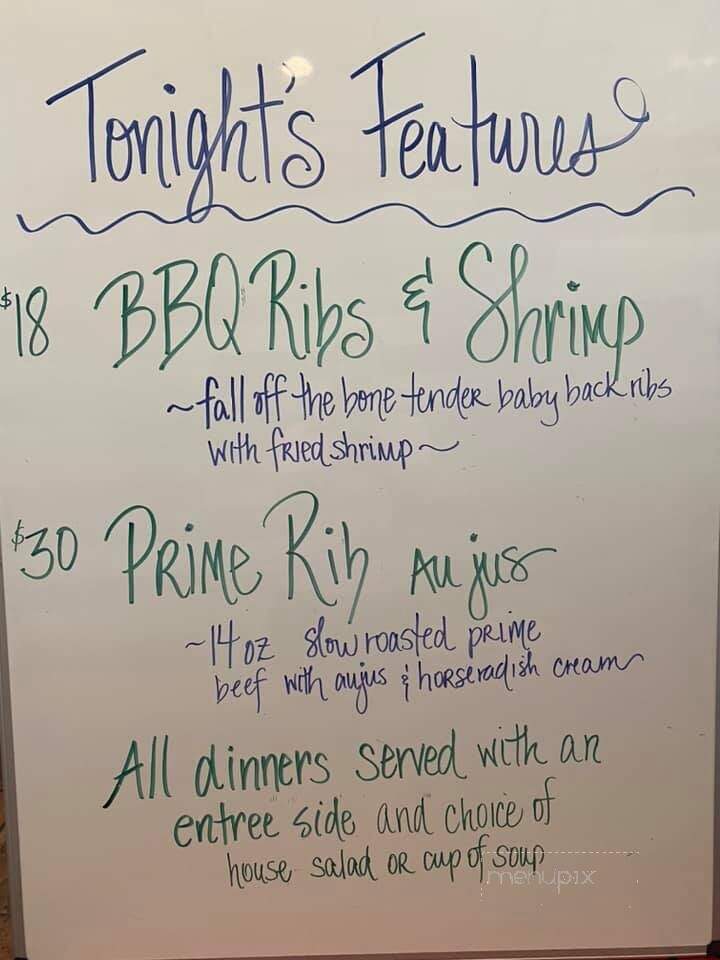 Tonight's Features
$18 BBQ Ribs & Shrimp
~fall off the bone tender baby back ribs
with fried shrimp~
$30 Prime Rib Au jus
~14 oz slow roasted prime
beef with aujus & horseradish cream~
All dinners served with an
entree side and choice of
house salad or cup of soup
menupix